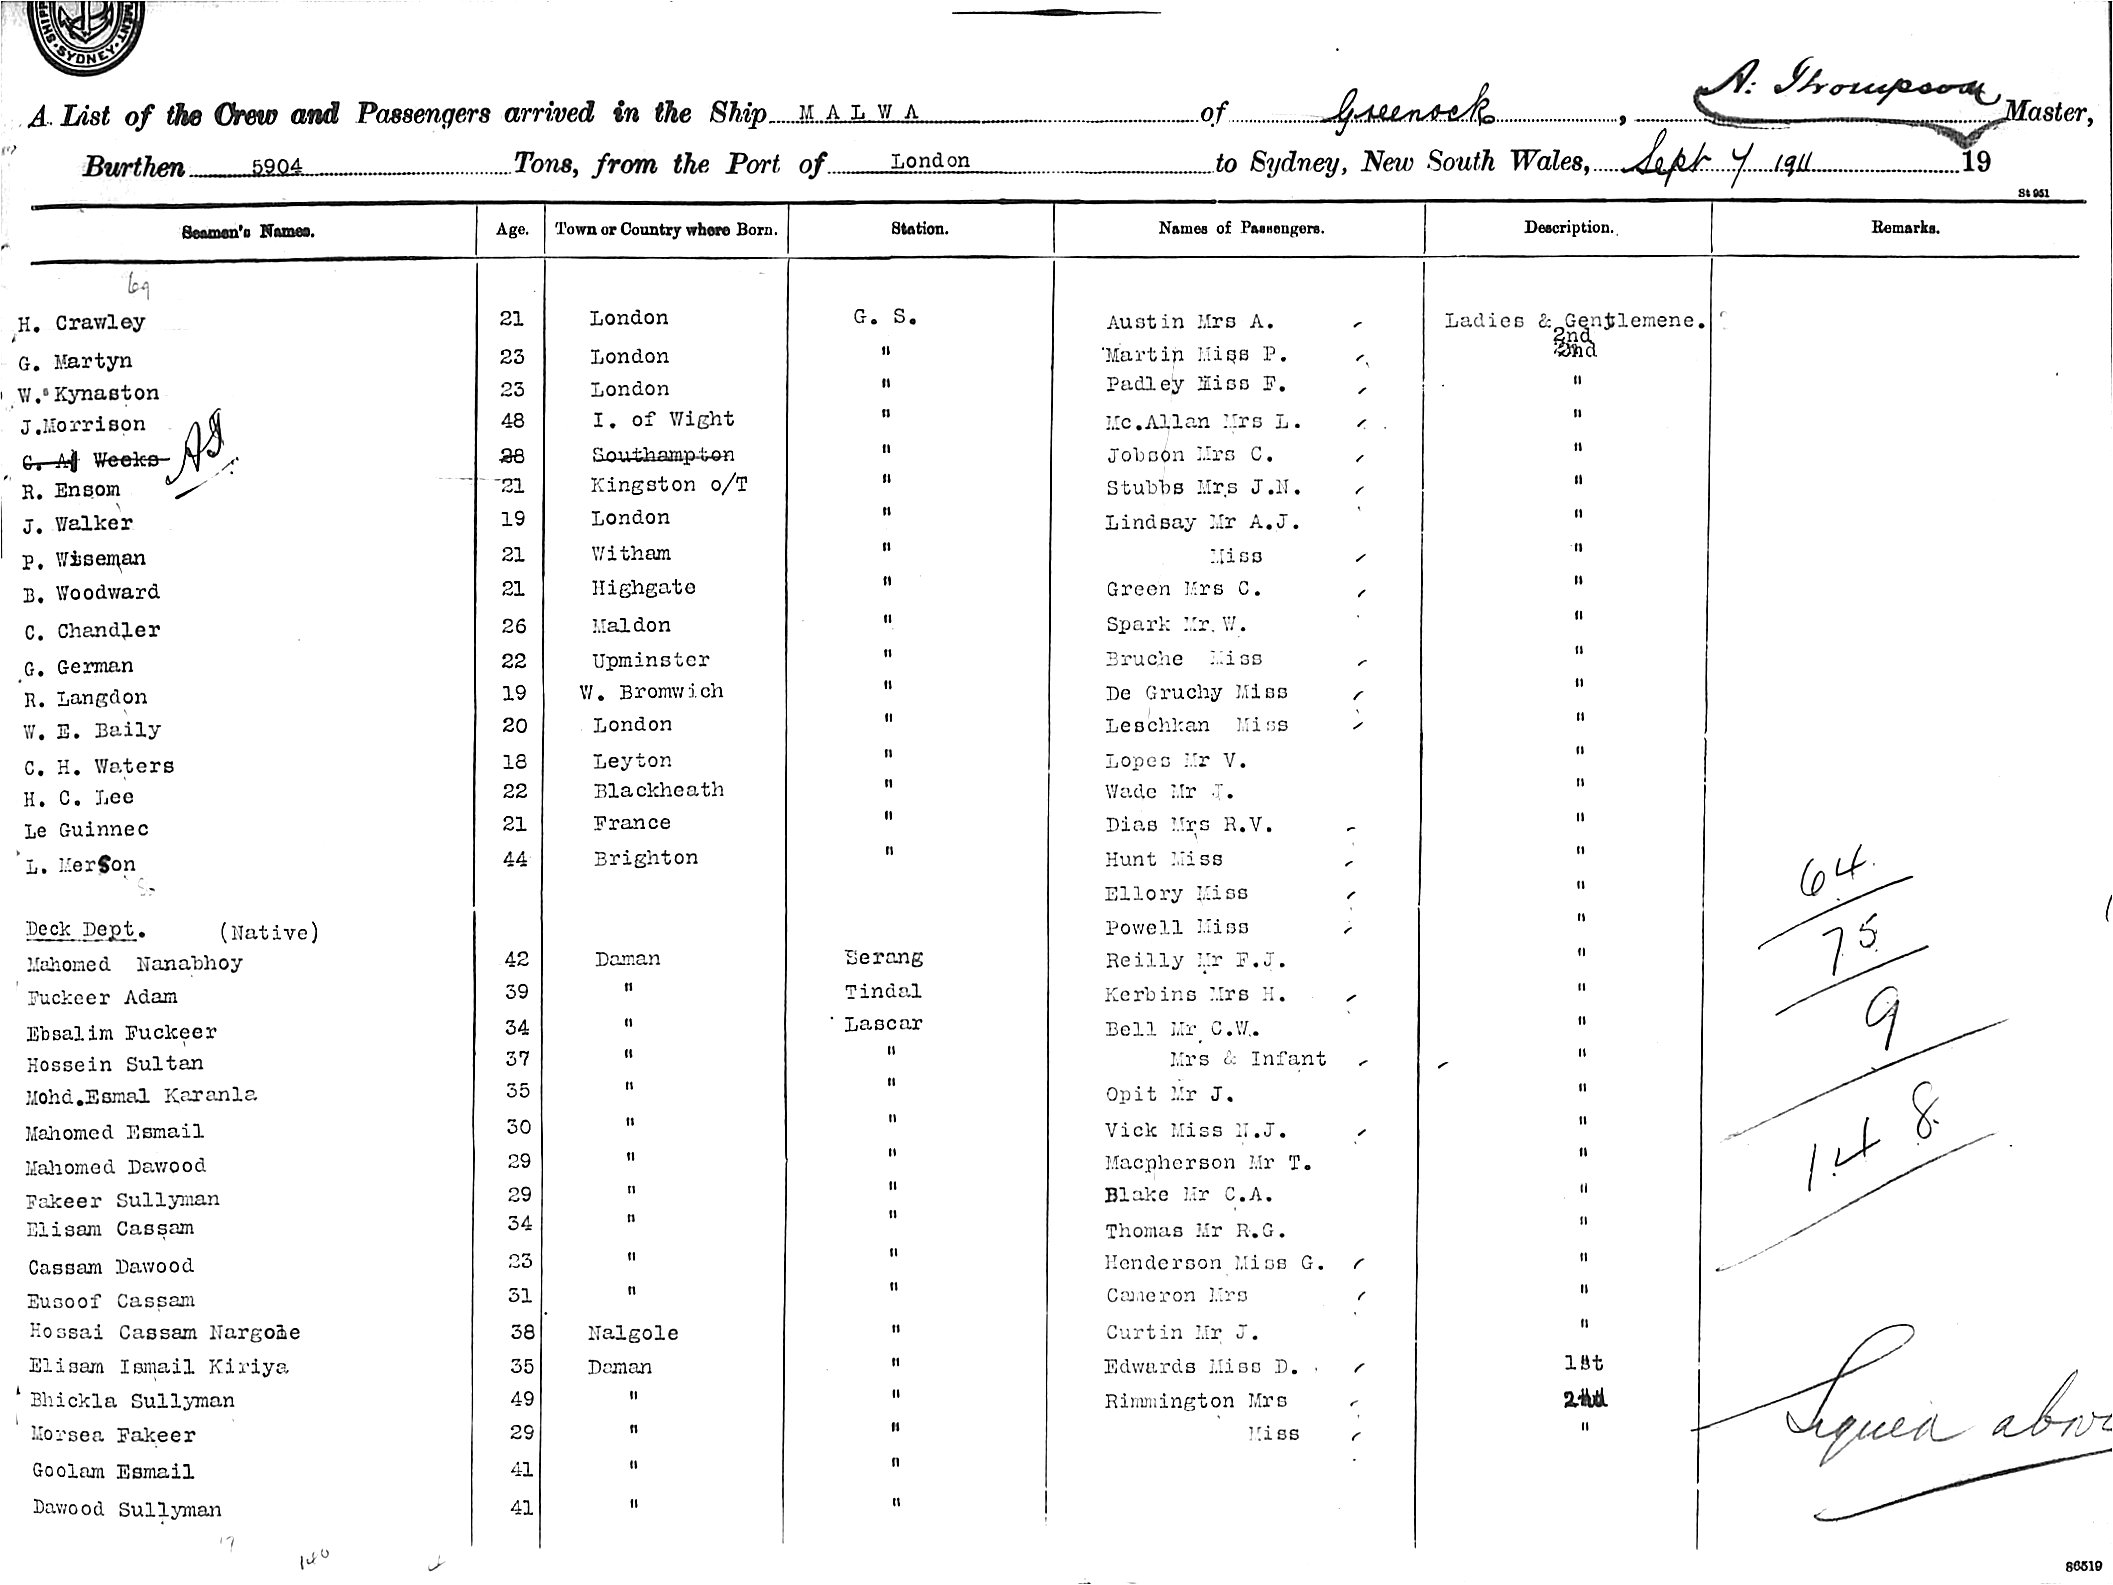 SHIPP MENT SYDNEY
A. Thompson
A List of the Crew and Passengers arrived in the Ship MALWA of Greenock, Master,
Burthen 5904 Tons, from the Port of London to Sydney, New South Wales, Sept 7 1911 19
St 951
Seamen's Names. Age. Town or Country where Born. Station. Names of Passengers. Description. Remarks.
69
H. Crawley 21 London G. S. Austin Mrs A. Ladies & Gentlemene.
2nd
G. Martyn 23 London " Martin Miss P. 2nd
W. Kynaston 23 London " Padley Miss F. "
J.Morrison 48 I. of Wight " Mc.Allan Mrs L. "
G. A. Weeks 28 Southampton " Jobson Mrs C. "
R. Ensom 21 Kingston o/T " Stubbs Mrs J.N. "
J. Walker 19 London " Lindsay Mr A.J. "
P. Wiseman 21 Witham " Miss "
B. Woodward 21 Highgate " Green Mrs C. "
C. Chandler 26 Maldon " Spark Mr.W. "
G. German 22 Upminster " Bruche Miss "
R. Langdon 19 W. Bromwich " De Gruchy Miss "
W. E. Baily 20 London " Leschkan Miss "
C. H. Waters 18 Leyton " Lopes Mr V. "
H. C. Lee 22 Blackheath " Wade Mr J. "
Le Guinnec 21 France " Dias Mrs R.V. "
L. Merson 44 Brighton " Hunt Miss "
Ellory Miss " 64
Deck Dept. (Native) Powell Miss "
Mahomed Nanabhoy 42 Daman Serang Reilly Mr F.J. " 75
Fuckeer Adam 39 " Tindal Kerbins Mrs H. "
Ebsalim Fuckeer 34 " Lascar Bell Mr C.W. " 9
Hossein Sultan 37 " " Mrs & Infant "
Mohd.Esmal Karanla 35 " " Opit Mr J. "
Mahomed Esmail 30 " " Vick Miss N.J. "
Mahomed Dawood 29 " " Macpherson Mr T. " 148
Fakeer Sullyman 29 " " Blake Mr C.A. "
Elisam Cassam 34 " " Thomas Mr R.G. "
Cassam Dawood 23 " " Henderson Miss G. "
Eusoof Cassam 31 " " Cameron Mrs "
Hossai Cassam Nargole 38 Nalgole " Curtin Mr J. "
Elisam Ismail Kiriya 35 Daman " Edwards Miss D. 1st
Bhickla Sullyman 49 " " Rimmington Mrs 2nd
Morsea Fakeer 29 " " Miss " Signed above
Goolam Esmail 41 " "
Dawood Sullyman 41 " "
17
140
86519